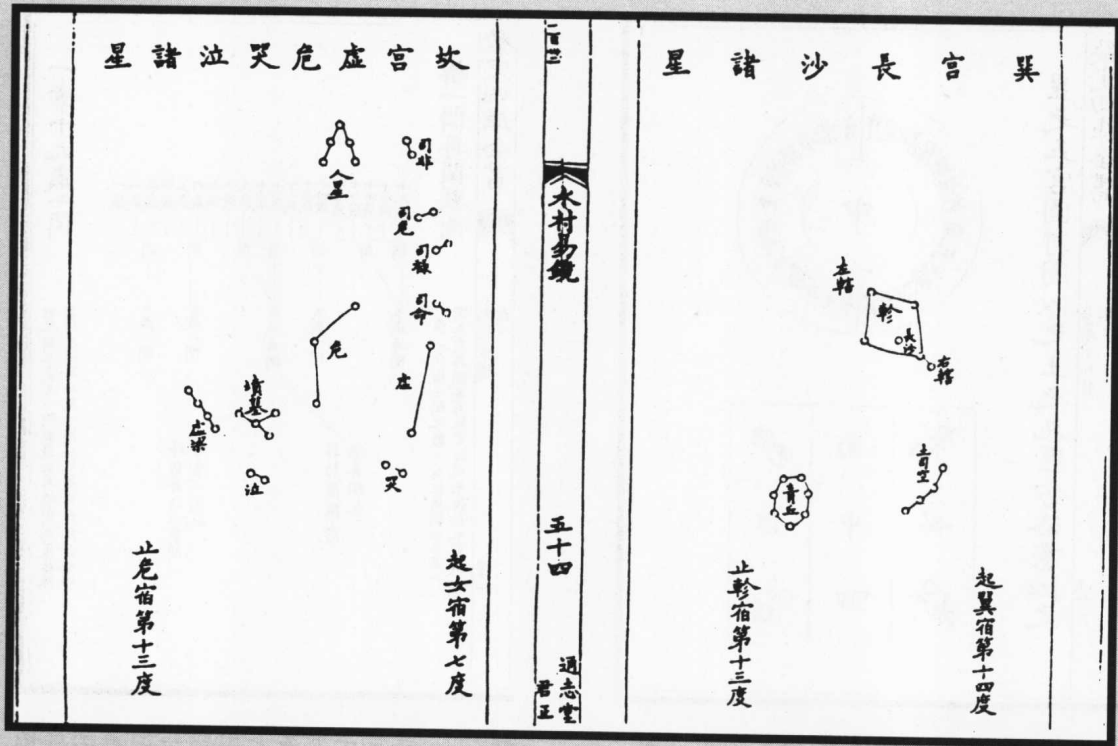 巽宮長沙諸星
左轄
軫
長沙
右轄
土司空
青丘
起翼宿第十四度
止軫宿第十三度
水村易鏡
五十四
通志堂
君正
坎宮虛危哭泣諸星
司非
人星
司危
司祿
司命
危
虛
墳墓
虛梁
泣
哭
起女宿第七度
止危宿第十三度